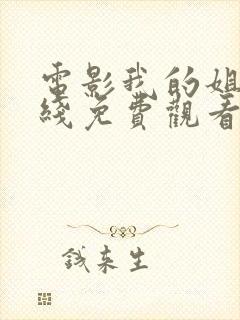 電影我的姐
綫免費觀看
錢來生